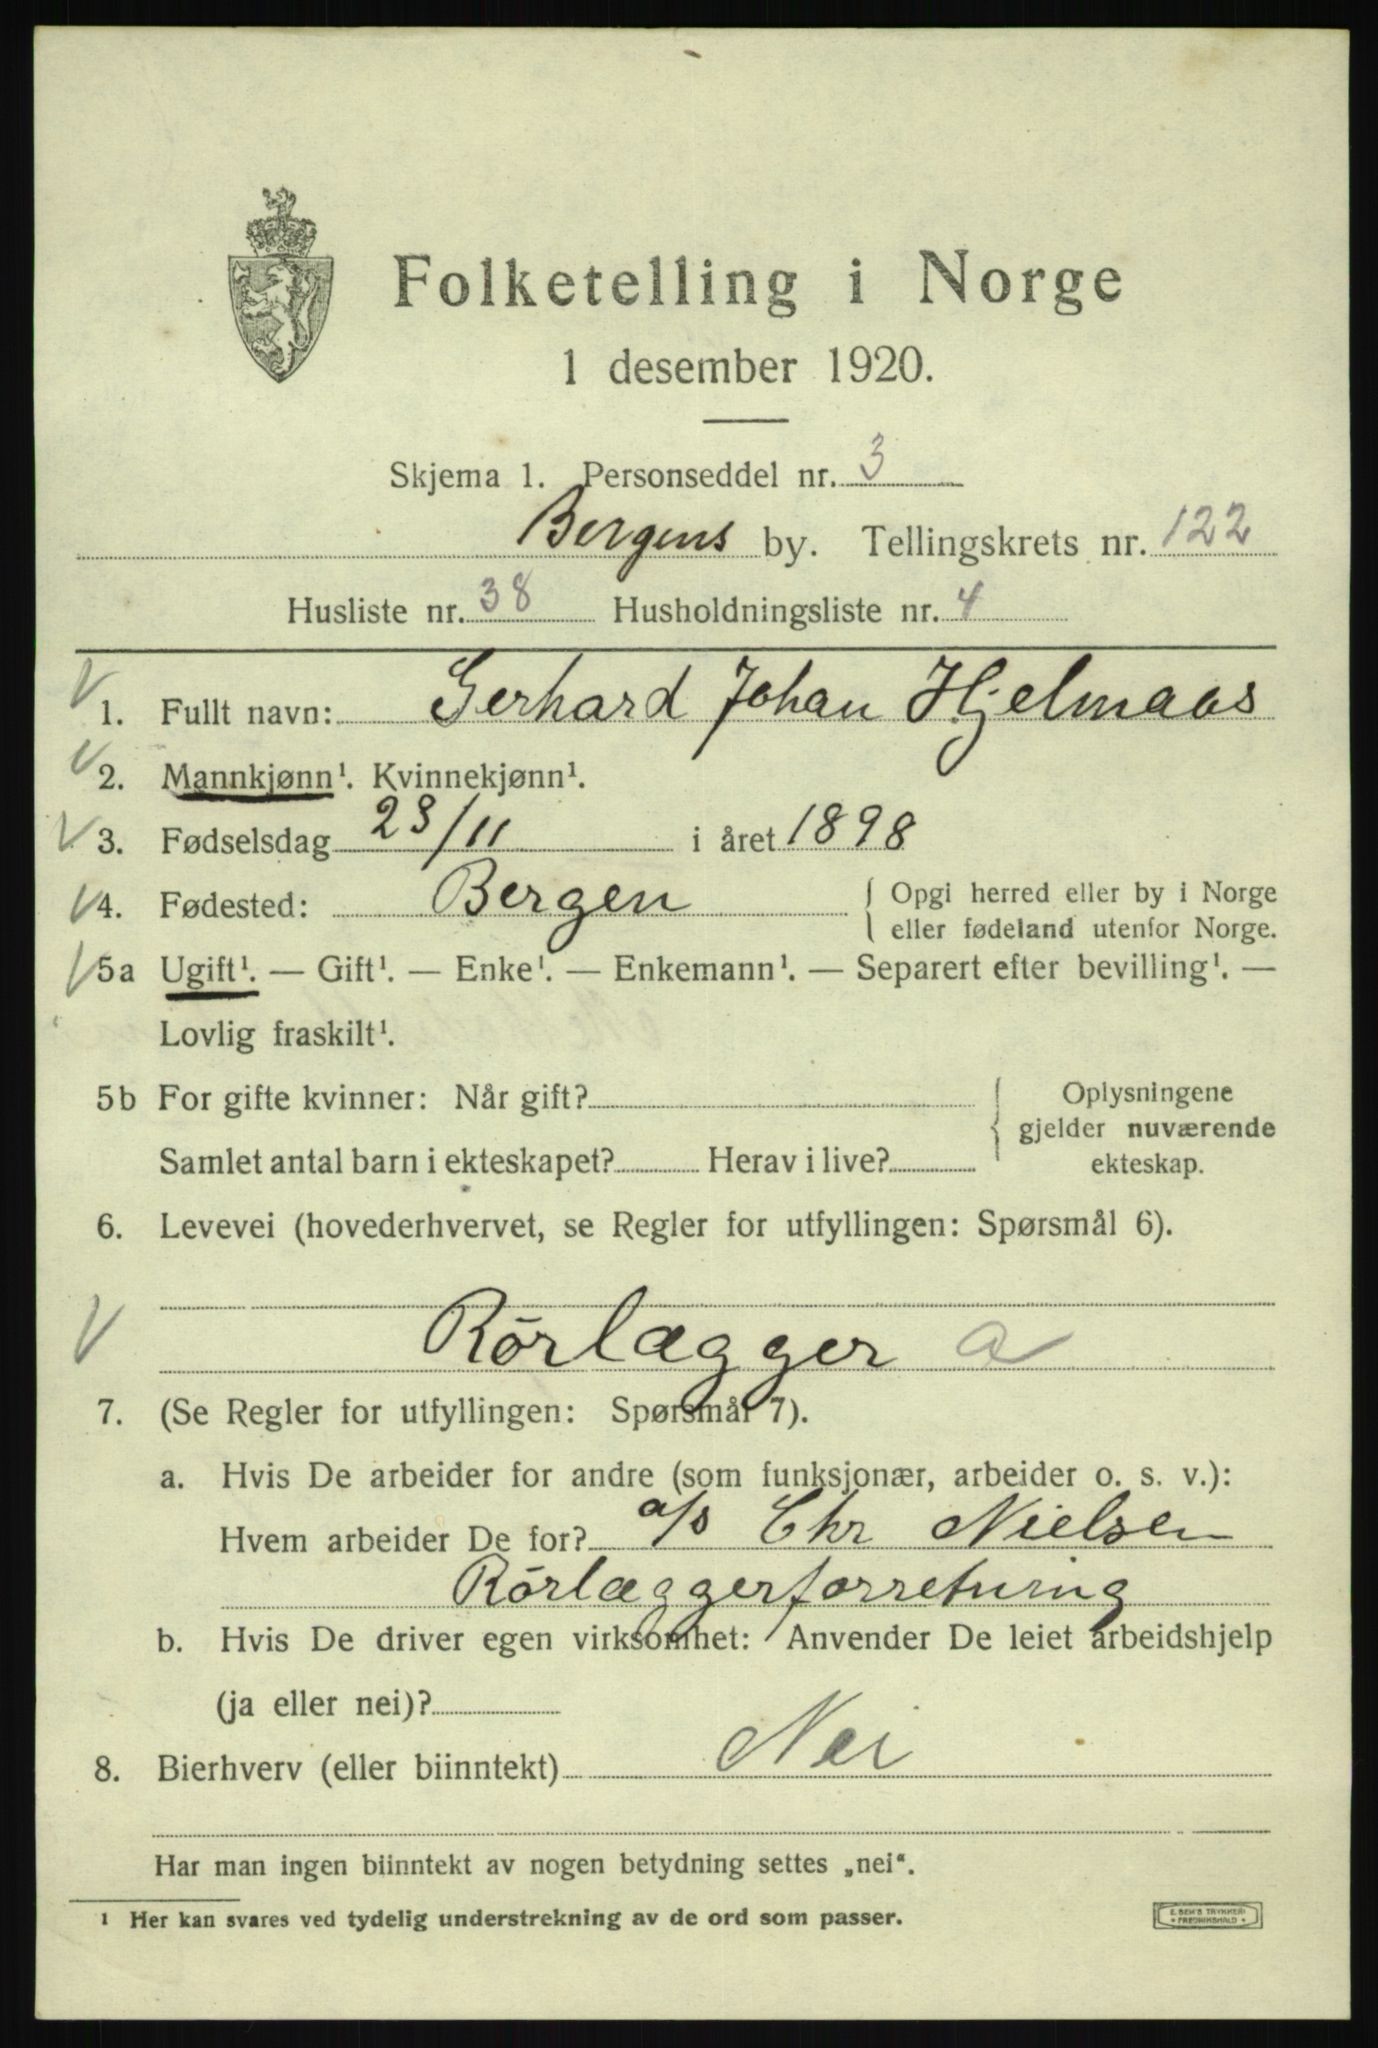 Folketelling i Norge
1 desember 1920.
Skjema 1. Personseddel nr. 3
Bergens by. Tellingskrets nr. 122
Husliste nr. 38 Husholdningsliste nr. 4
1. Fullt navn: Gerhard Johan Hjelmaas
2. Mannkjønn¹. Kvinnekjønn¹.
3. Fødselsdag 23/11 i året 1898
4. Fødested: Bergen { Opgi herred eller by i Norge
eller fødeland utenfor Norge.
5a Ugift¹. — Gift¹. — Enke¹. — Enkemann¹. — Separert efter bevilling¹. —
Lovlig fraskilt¹.
5b For gifte kvinner: Når gift? { Oplysningene
gjelder nuværende
Samlet antal barn i ekteskapet? Herav i live? ekteskap.
6. Levevei (hovederhvervet, se Regler for utfyllingen: Spørsmål 6).
Rörlægger a
7. (Se Regler for utfyllingen: Spørsmål 7).
a. Hvis De arbeider for andre (som funksjonær, arbeider o. s. v.):
Hvem arbeider De for? a/s Chr Nielsen
Rörlæggerforretning
b. Hvis De driver egen virksomhet: Anvender De leiet arbeidshjelp
(ja eller nei)?
8. Bierhverv (eller biinntekt) Nei
Har man ingen biinntekt av nogen betydning settes „nei“.
¹ Her kan svares ved tydelig understrekning av de ord som passer.
E. SEM'S TRYKKERI
FREDRIKSHALD